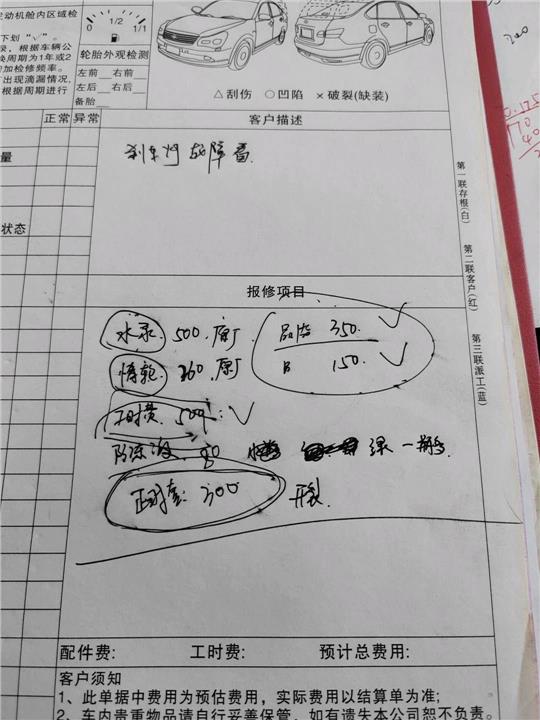 动机舱内区域检
下划"√"。
录，根据车辆公
换周期为1年或2
加检修频率。
出现滴漏情况,
根据周期进行
0 1/2 1/1
轮胎外观检测
左前 右前
左后 右后
备胎
△刮伤 ○凹陷 ×破裂(缺装)
正常 异常
客户描述
量
刹车灯 故障 看
状态
第一联存根(白)
第二联客户(红)
第三联派工(蓝)
报修项目
水泵 500. 原厂 品牌 350. √
惰轮 260. 原厂 B 150. √
√
防冻液 80 绿 一瓶
正时套: 300 开裂.
配件费: 工时费: 预计总费用:
客户须知
1、此单据中费用为预估费用，实际费用以结算单为准;
2、车内贵重物品请自行妥善保管，如有遗失本公司恕不负责。